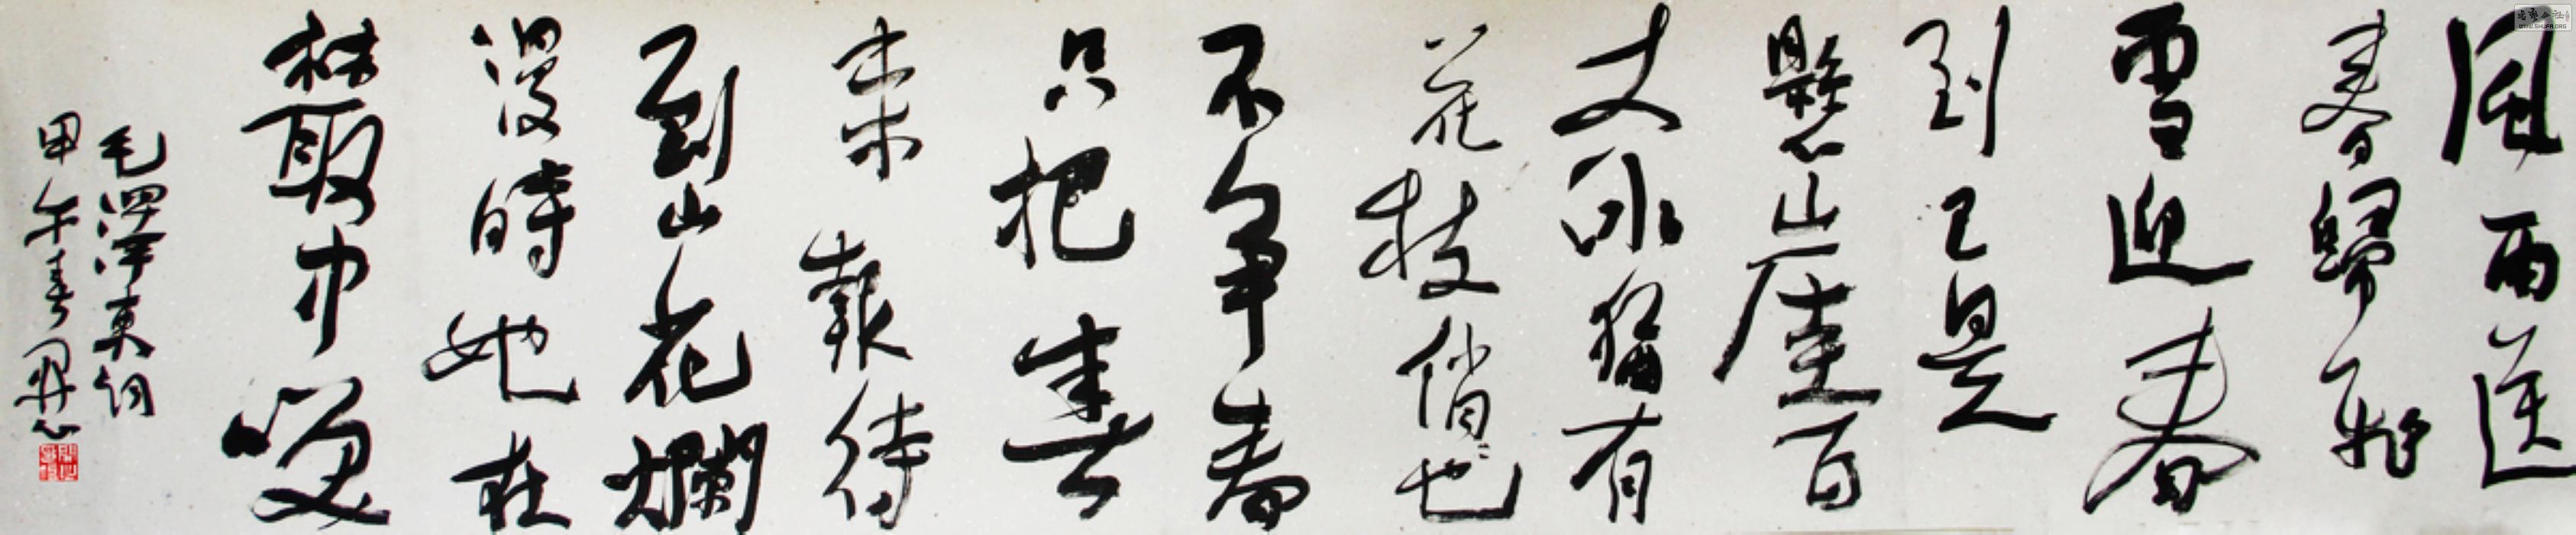 風雨送
春歸飛
雪迎春
到已是
懸山崖百
丈冰猶有
花枝俏俏也
不爭春
只把春
來報待
到山花爛
漫時她在
叢中笑
毛澤東詞
甲午春月